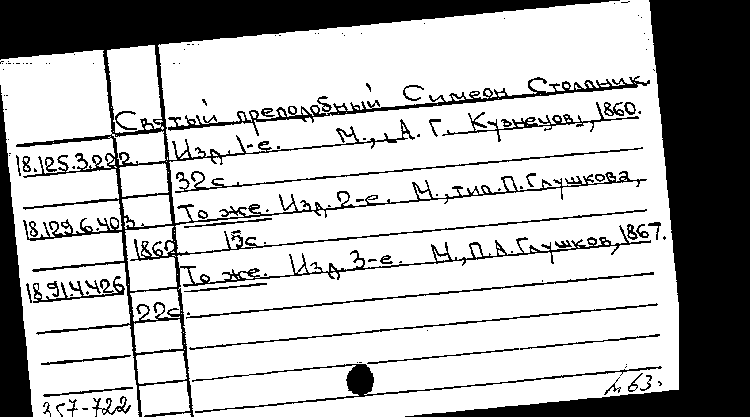 Святый преподобный Симеон Столпник.
18.125.3.222. Изд. 1-е. М., А. Г. Кузнецов, 1860.
32с.
18.129.6.403. То же. Изд. 2-е. М., тип. П. Глушкова,
1862. 15с.
18.914.426 То же. Изд. 3-е. М., П.А. Глушков, 1867.
22с.
357-722 63.